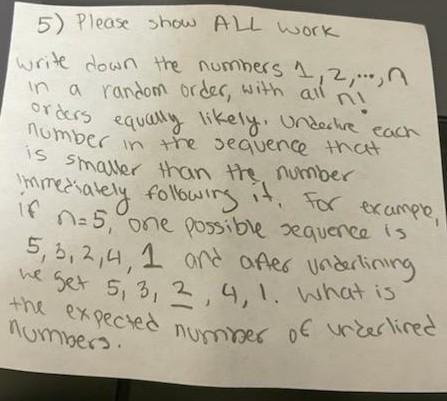 5) Please show ALL work
write down the numbers 1,2,...,n
in a random order, with all n!
orders equally likely. Underline each
number in the sequence that
is smaller than the number
immediately following it. For example,
if n=5, one possible sequence is
5,3,2,4,1 and after underlining
we get 5,3,2,4,1. What is
the expected number of underlined
numbers.